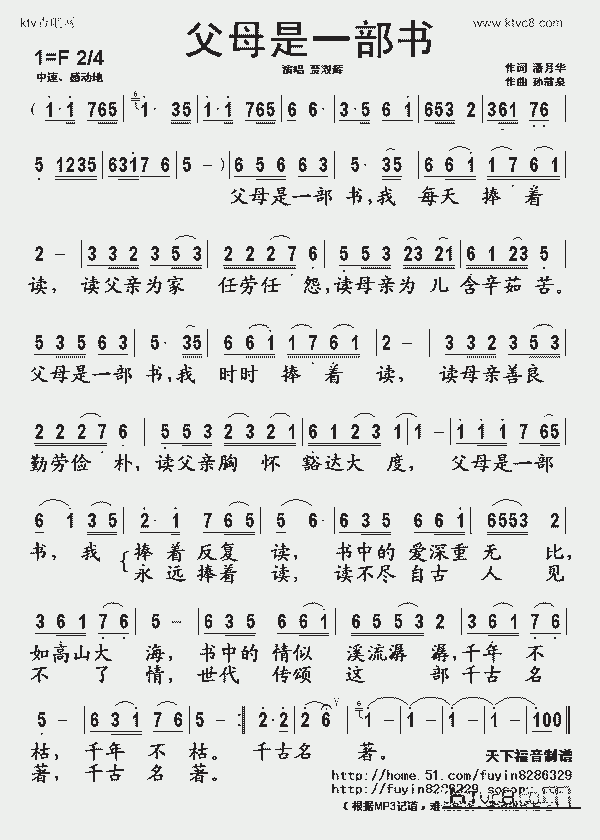 ktv吉吧网 www.ktvc8.com
父母是一部书
1=F 2/4
中速、感动地
演唱 贾淑辉
作词 潘月华
作曲 孙蒲泉
( 1·1 765 | 6 1· 35 | 1·1 765 | 6 6· | 3·5 6 1 | 653 2 | 361 76 |
5 1235 | 63176 | 5 – ) | 6 5 6 6 3 | 5· 35 | 6 6 1 1 7 6 1 |
父母是一部 书,我 每天 捧 着
2 – | 3 3 2 3 5 3 | 2 2 2 7 6 | 5 5 3 23 21 | 6 1 23 5 |
读, 读父亲为家 任劳任 怨,读母亲为 儿 含辛茹 苦。
5 3 5 6 3 | 5· 35 | 6 6 1 1 7 6 1 | 2 – | 3 3 2 3 5 3 |
父母是一部 书,我 时时 捧 着 读, 读母亲善良
2 2 2 7 6 | 5 5 3 2 3 2 1 | 6 1 2 3 2 | 1 – | 1 1 1 7 65 |
勤劳俭 朴,读父亲胸 怀 豁达大 度, 父母是一部
6 1 3 5 | 2· 1 | 7 6 5 | 5 6· | 6 3 5 6 6 1 | 6553 2 |
书, 我 { 捧 着 反复 读, 书中的 爱深重 无 比,
永 远 捧着 读, 读不尽 自古 人 见
3 6 1 7 6 | 5 – | 6 3 5 6 6 1 | 6 5 5 3 5 | 3 6 1 7 6 |
如高山大 海, 书中的 情似 溪流潺 潺,千年 不
不 了 情, 世代 传颂 这 部 千古 名
5 – | 6 3 1 7 6 | 5 – :‖ 2·2 | 2 6 | 1 – | 1 – | 1 – | 100 ‖
枯, 千年 不 枯。 千古名 著。
著, 千古 名 著。
天下福音制谱
http://home.51.com/fuyin8286329
http://fuyin8286329.
(根据MP3记谱,难
ktvc8.com